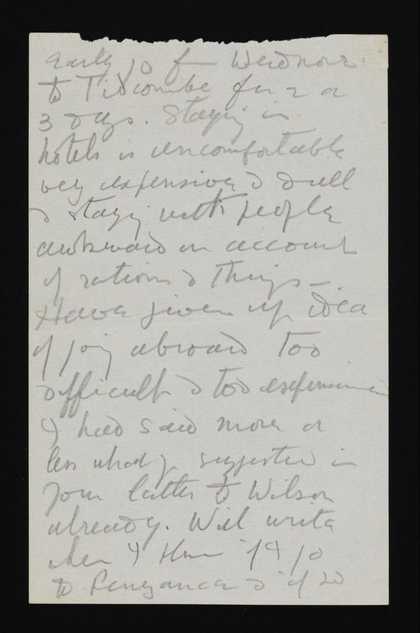 early 10 f Weednow
to Titcombe for 2 or
3 days. Staying in
hotels is uncomfortable
very expensive & dull
& staying with people
awkward on account
of rations & things –
Have given up idea
of going abroad too
difficult & too expensive
I had said more or
less what you suggested in
your letter to Wilson
already. Will write
when I know if I go
to Penzance & if so